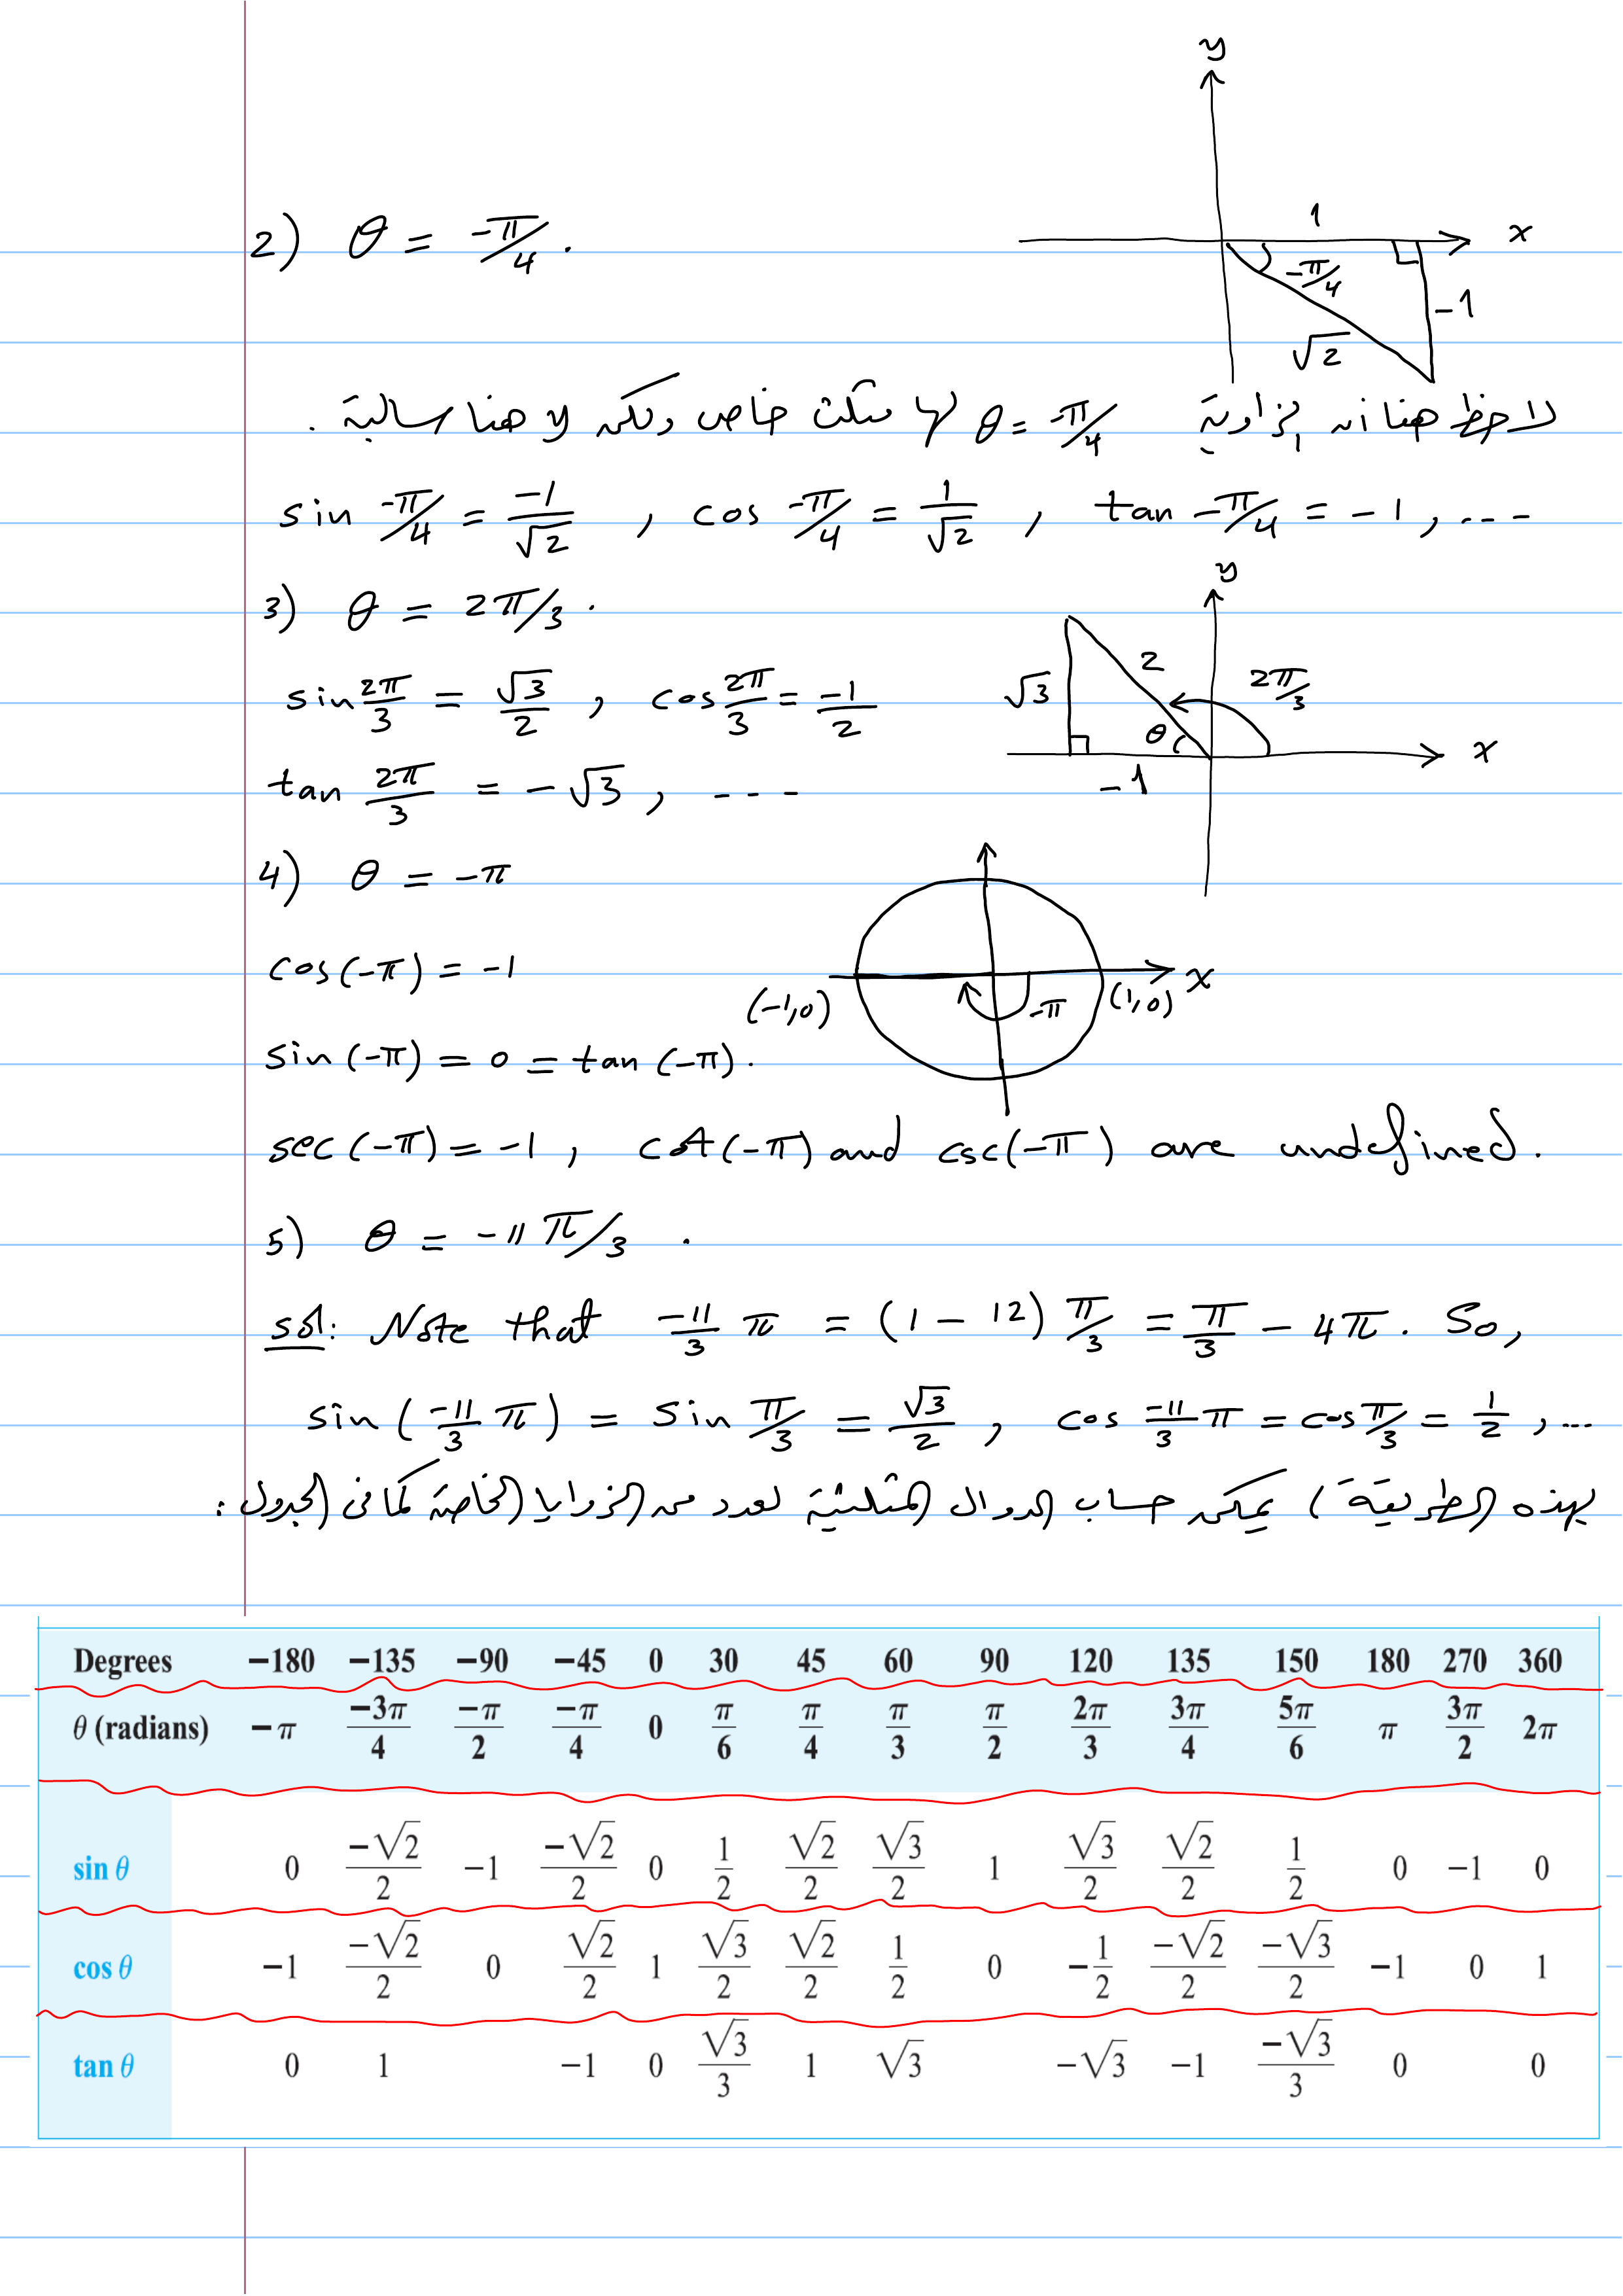 y
2) θ = -π/4 .
1
x
-π/4
-1
√2
لاحظ هنا أن الزاوية θ = -π/4 لها مثلث خاص ولكن y هنا سالبة .
sin -π/4 = -1/√2 , cos -π/4 = 1/√2 , tan -π/4 = -1 , ---
y
3) θ = 2π/3 .
2
√3
2π/3
θ
x
-1
sin 2π/3 = √3/2 , cos 2π/3 = -1/2
tan 2π/3 = -√3 , ---
4) θ = -π
cos(-π) = -1
x
(-1,0)
-π
(1,0)
sin(-π) = 0 = tan(-π) .
sec(-π) = -1 , cot(-π) and csc(-π) are undefined.
5) θ = -11π/3 .
sol: Note that -11/3 π = (1-12) π/3 = π/3 - 4π . So,
sin(-11/3 π) = sin π/3 = √3/2 , cos -11/3 π = cos π/3 = 1/2 , ...
بهذه الطريقة يمكن حساب الدوال المثلثية لعدد من الزوايا الخاصة كما في الجدول :
Degrees −180 −135 −90 −45 0 30 45 60 90 120 135 150 180 270 360
θ (radians) −π −3π/4 −π/2 −π/4 0 π/6 π/4 π/3 π/2 2π/3 3π/4 5π/6 π 3π/2 2π
sin θ 0 −√2/2 −1 −√2/2 0 1/2 √2/2 √3/2 1 √3/2 √2/2 1/2 0 −1 0
cos θ −1 −√2/2 0 √2/2 1 √3/2 √2/2 1/2 0 −1/2 −√2/2 −√3/2 −1 0 1
tan θ 0 1 −1 0 √3/3 1 √3 −√3 −1 −√3/3 0 0